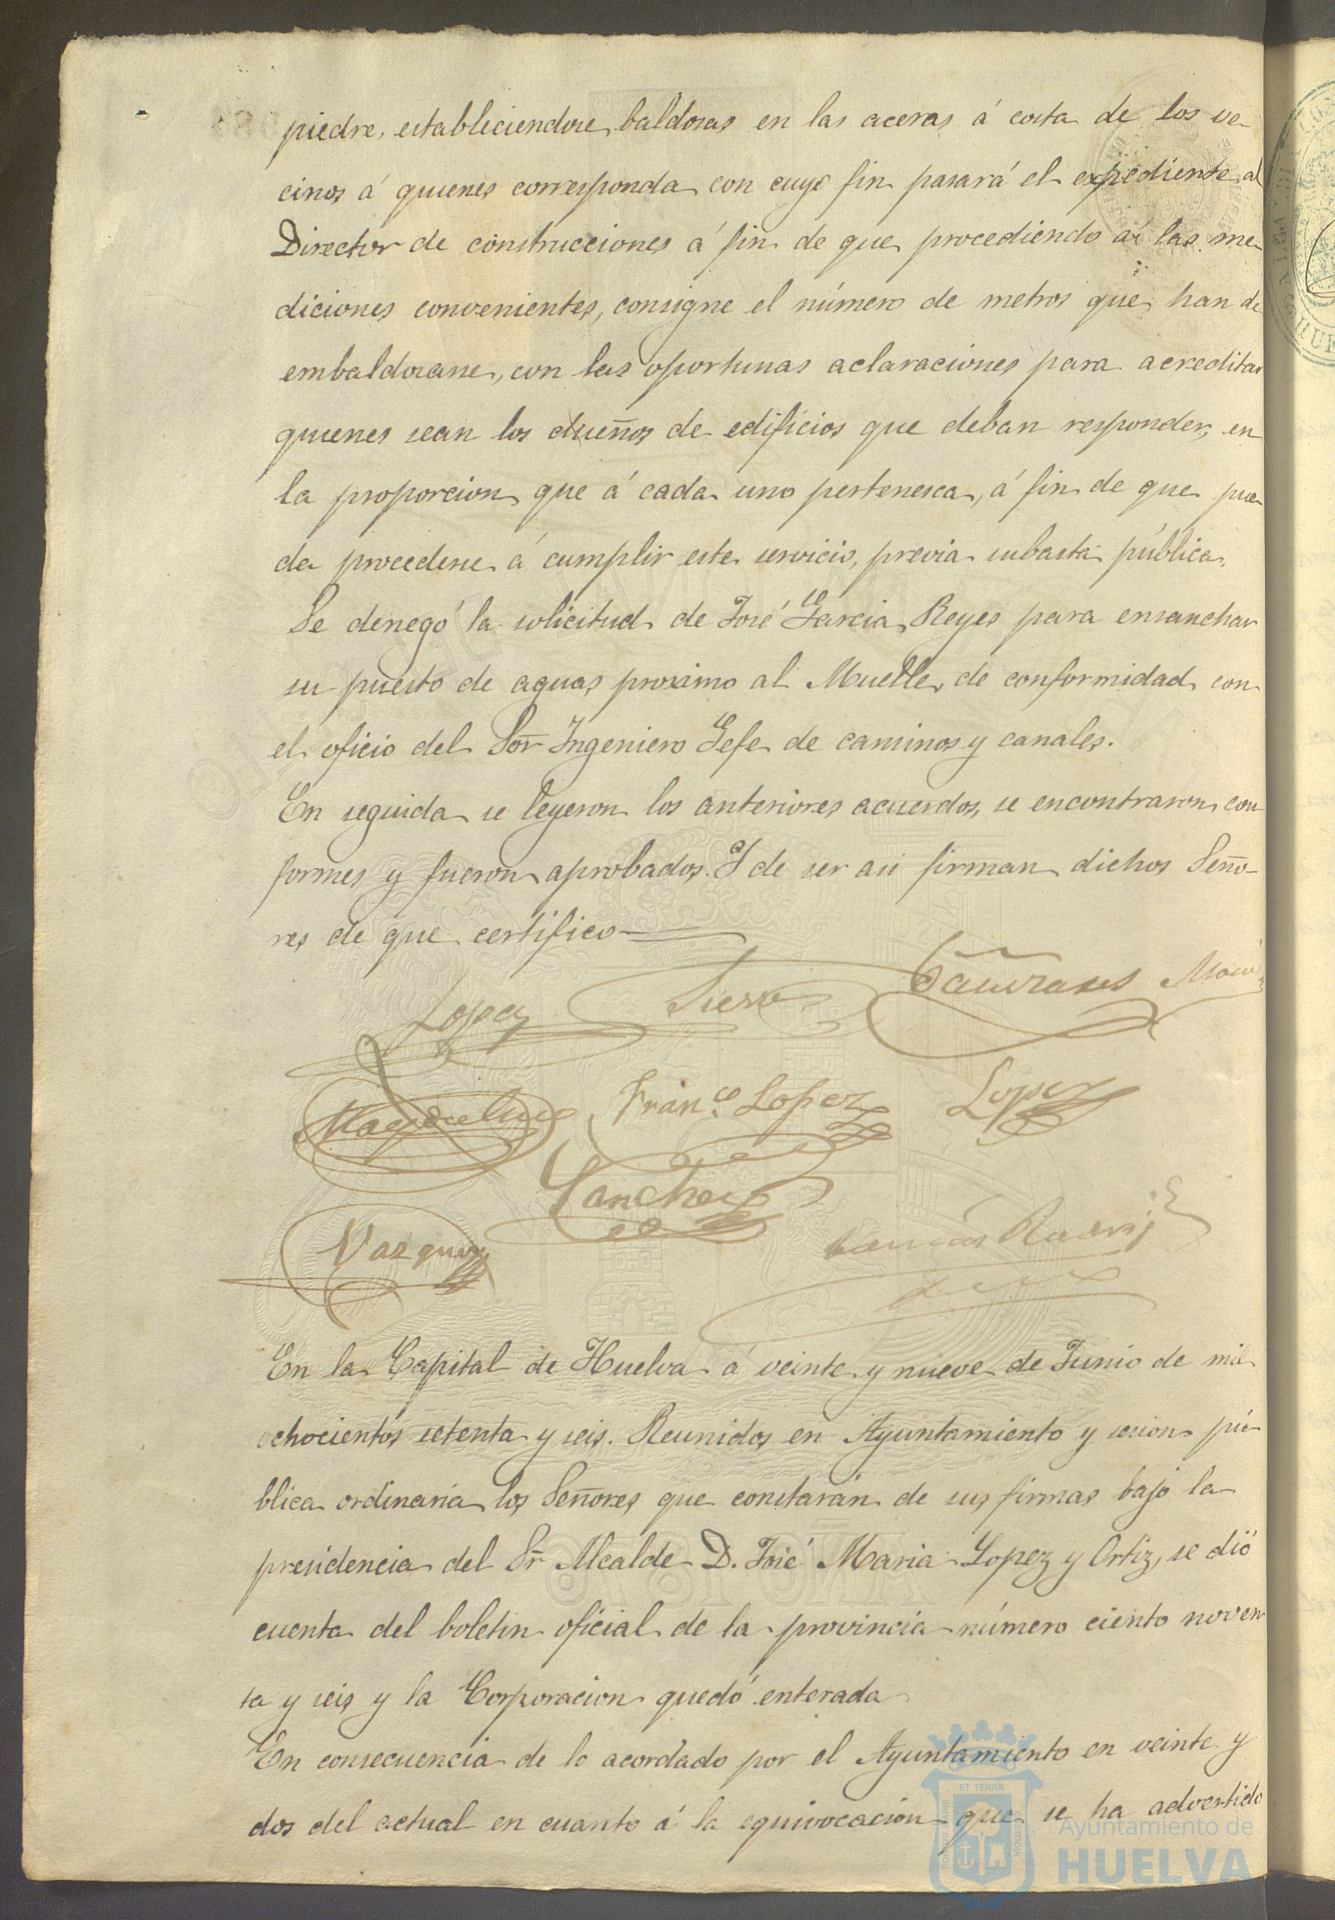 piedre, estableciendose baldosas en las aceras á costa de los ve-
cinos á quienes corresponda con cuyo fin pasará el expediente al
Director de construcciones á fin de que procediendo á las me-
diciones convenientes, consigne el número de metros que han de
embaldosarse, con las oportunas aclaraciones para acreditar
quienes sean los dueños de edificios que deban responder, en
la proporcion que á cada uno pertenesca, á fin de que pue-
da procederse á cumplir este servicio, previa subasta pública.
Se denegó la solicitud de José Garcia Reyes para ensanchar
su puesto de aguas proximo al Muelle, de conformidad con
el oficio del Sor Ingeniero Gefe de caminos y canales.
En seguida se leyeron los anteriores acuerdos, se encontraron con
formes y fueron aprobados. Y de ser asi firman dichos Seño-
res de que certifico
Lopez
Franco Lopez
Lopez
Sanchez
Vazquez
En la Capital de Huelva á veinte y nueve de Junio de mil
ochocientos setenta y seis. Reunidos en Ayuntamiento y sesion pú-
blica ordinaria los Señores que constarán de sus firmas bajo la
presidencia del Sr Alcalde D. José Maria Lopez y Ortiz, se dió
cuenta del boletin oficial de la provincia número ciento noven
ta y seis y la Corporacion quedó enterada
En consecuencia de lo acordado por el Ayuntamiento en veinte y
dos del actual en cuanto á la equivocacion que se ha advertido
Ayuntamiento de
HUELVA